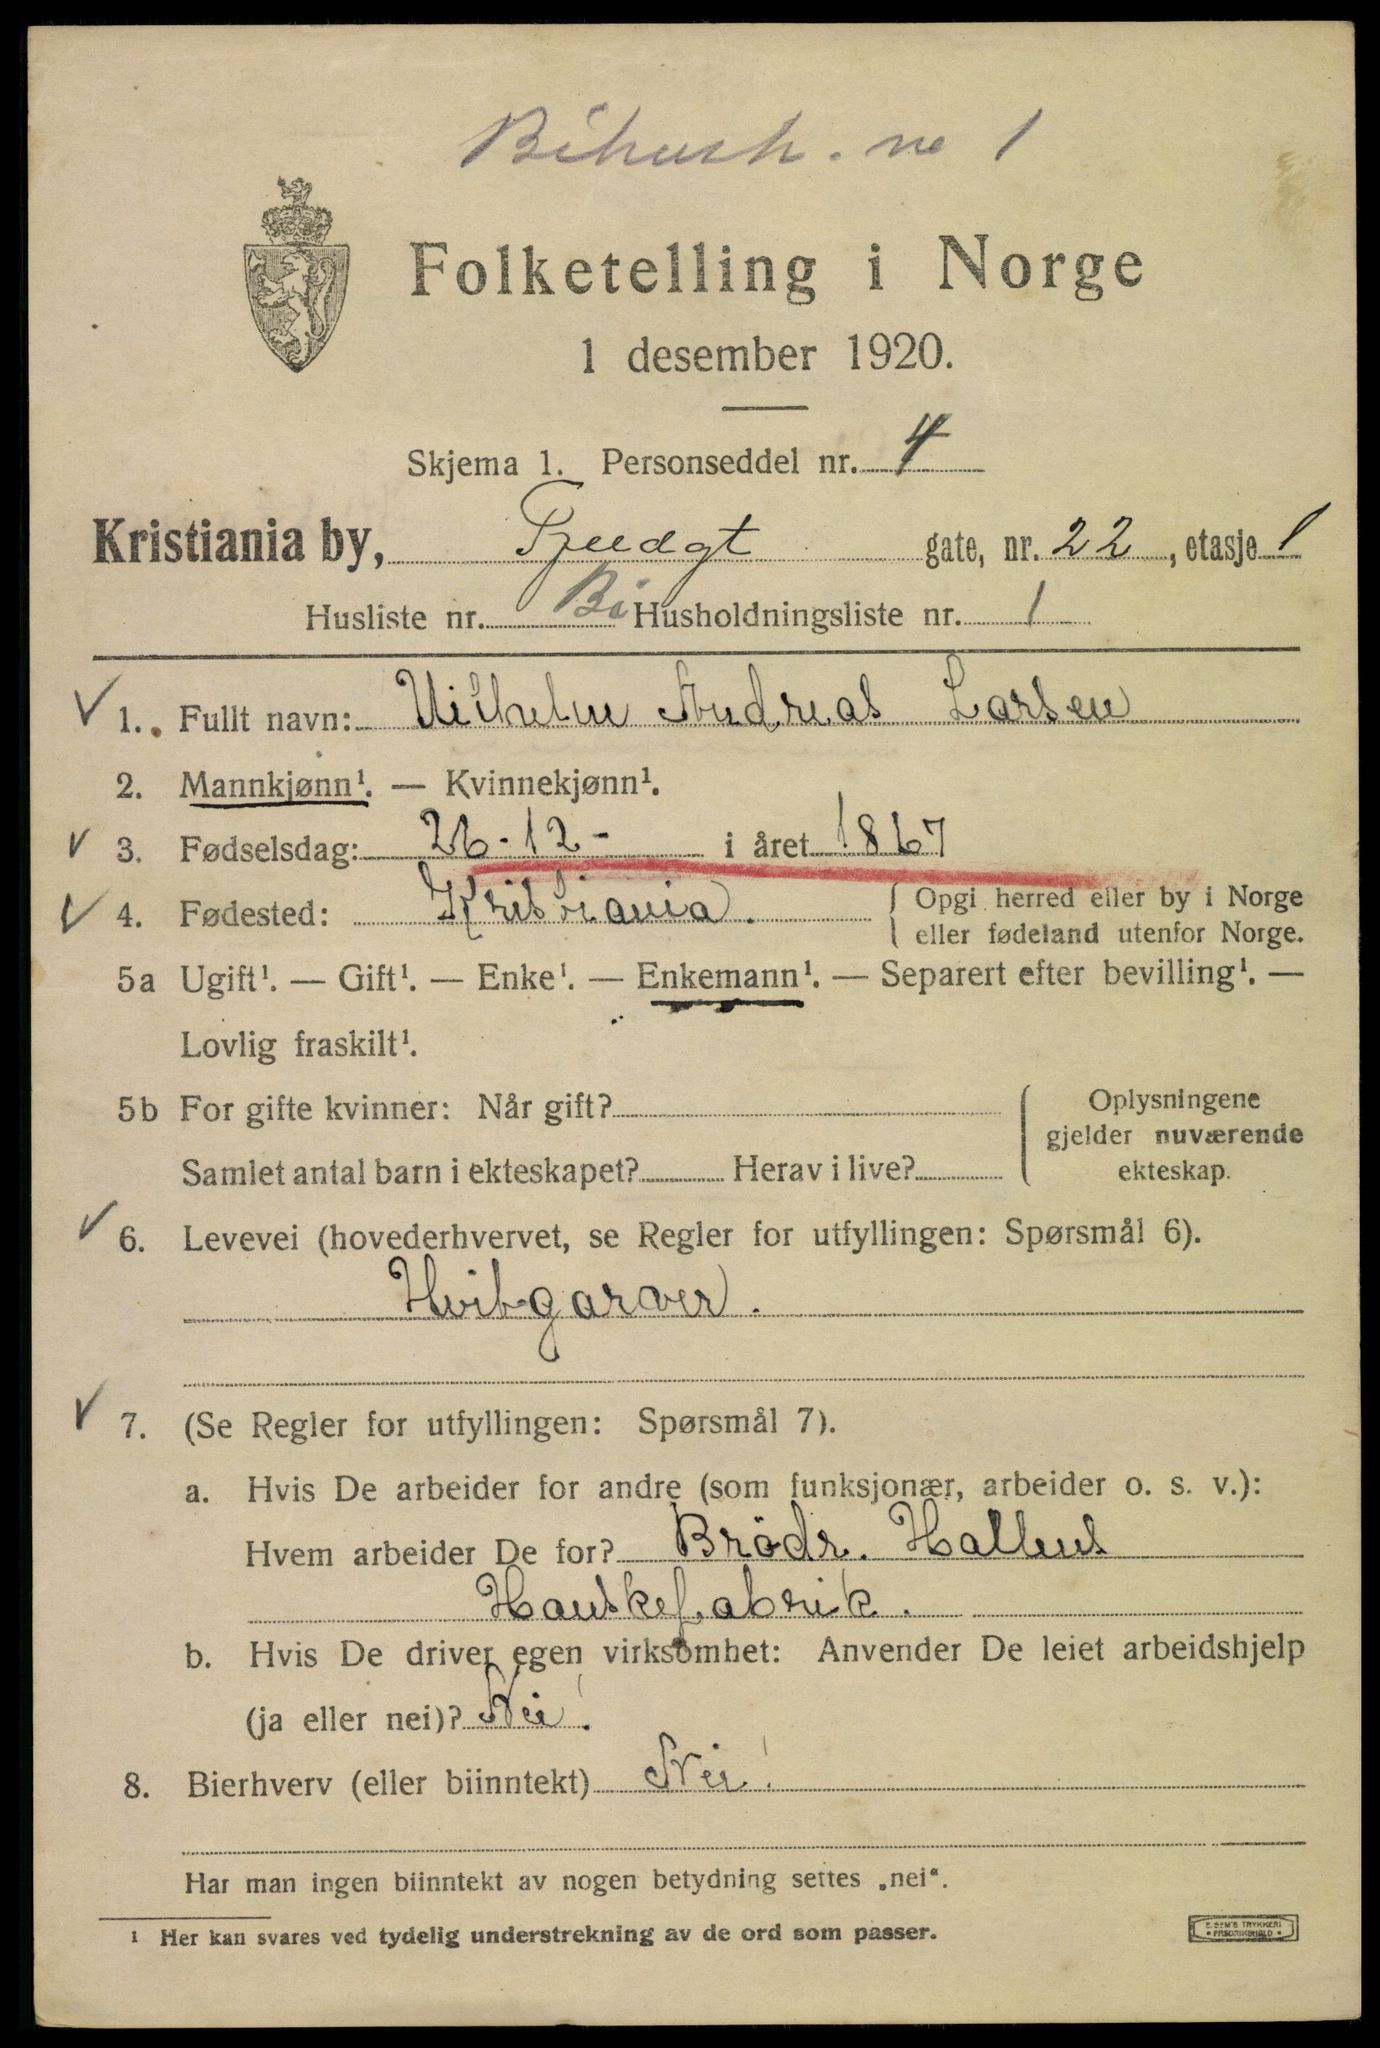 Bihush. nr 1
Folketelling i Norge
1 desember 1920.
Skjema 1. Personseddel nr. 4
Kristiania by, gate, nr. 22, etasje 1
Husliste nr. Bi Husholdningsliste nr. 1
1. Fullt navn: Vilhelm Andreas Larsen
2. Mannkjønn¹. — Kvinnekjønn¹.
3. Fødselsdag: 26-12- i året 1867
4. Fødested: Kristiania. { Opgi herred eller by i Norge
eller fødeland utenfor Norge.
5a Ugift¹. — Gift¹. — Enke¹. — Enkemann¹. — Separert efter bevilling¹. —
Lovlig fraskilt¹.
5b For gifte kvinner: Når gift? { Oplysningene
gjelder nuværende
Samlet antal barn i ekteskapet? Herav i live? ekteskap.
6. Levevei (hovederhvervet, se Regler for utfyllingen: Spørsmål 6).
Hvitgarver.
7. (Se Regler for utfyllingen: Spørsmål 7).
a. Hvis De arbeider for andre (som funksjonær, arbeider o. s. v.):
Hvem arbeider De for? Brödr. Hallens
Hanskefabrik.
b. Hvis De driver egen virksomhet: Anvender De leiet arbeidshjelp
(ja eller nei)? Nei!
8. Bierhverv (eller biinntekt) Nei!
Har man ingen biinntekt av nogen betydning settes „nei“.
¹ Her kan svares ved tydelig understrekning av de ord som passer.
E. SEM'S TRYKKERI
FREDRIKSHALD